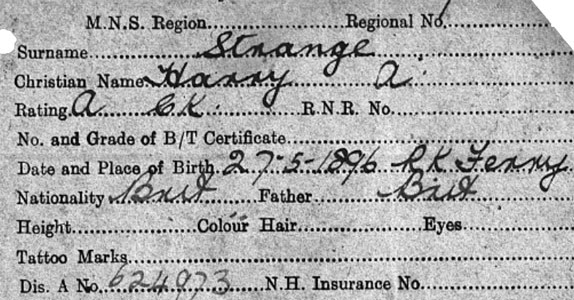 M.N.S. Region.................... Regional No.
Surname Strange
Christian Name Harry A.
Rating A Ck. R.N.R. No.
No. and Grade of B/T Certificate
Date and Place of Birth 27-5-1896 R K Ferry
Nationality Brit Father Brit
Height............Colour Hair............Eyes
Tattoo Marks
Dis. A No. 624973 N.H. Insurance No.